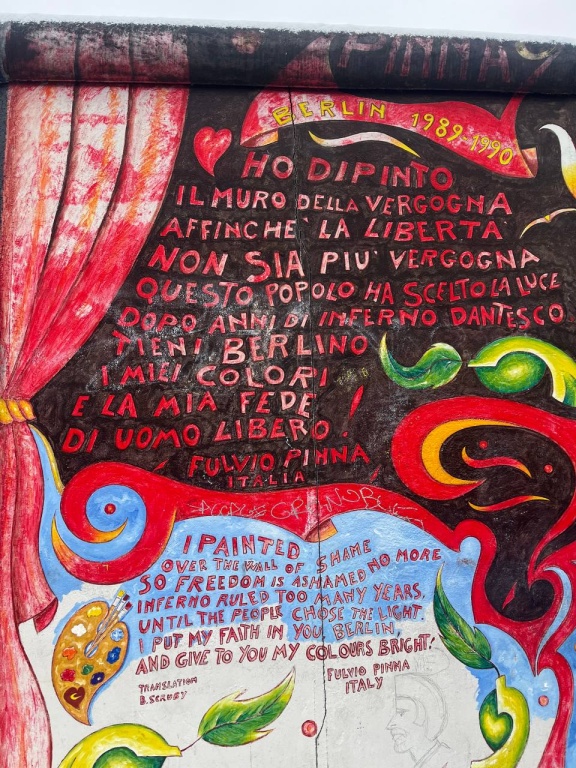 PINNA
BERLIN 1989-1990
HO DIPINTO
IL MURO DELLA VERGOGNA
AFFINCHE' LA LIBERTA'
NON SIA PIU' VERGOGNA
QUESTO POPOLO HA SCELTO LA LUCE
DOPO ANNI DI INFERNO DANTESCO
TIENI BERLINO
I MIEI COLORI
E LA MIA FEDE
DI UOMO LIBERO!
FULVIO PINNA
ITALIA
I PAINTED
OVER THE WALL OF SHAME
SO FREEDOM IS ASHAMED NO MORE
INFERNO RULED TOO MANY YEARS,
UNTIL THE PEOPLE CHOSE THE LIGHT.
I PUT MY FAITH IN YOU BERLIN,
AND GIVE TO YOU MY COLOURS BRIGHT!
TRANSLATION
FULVIO PINNA
ITALY